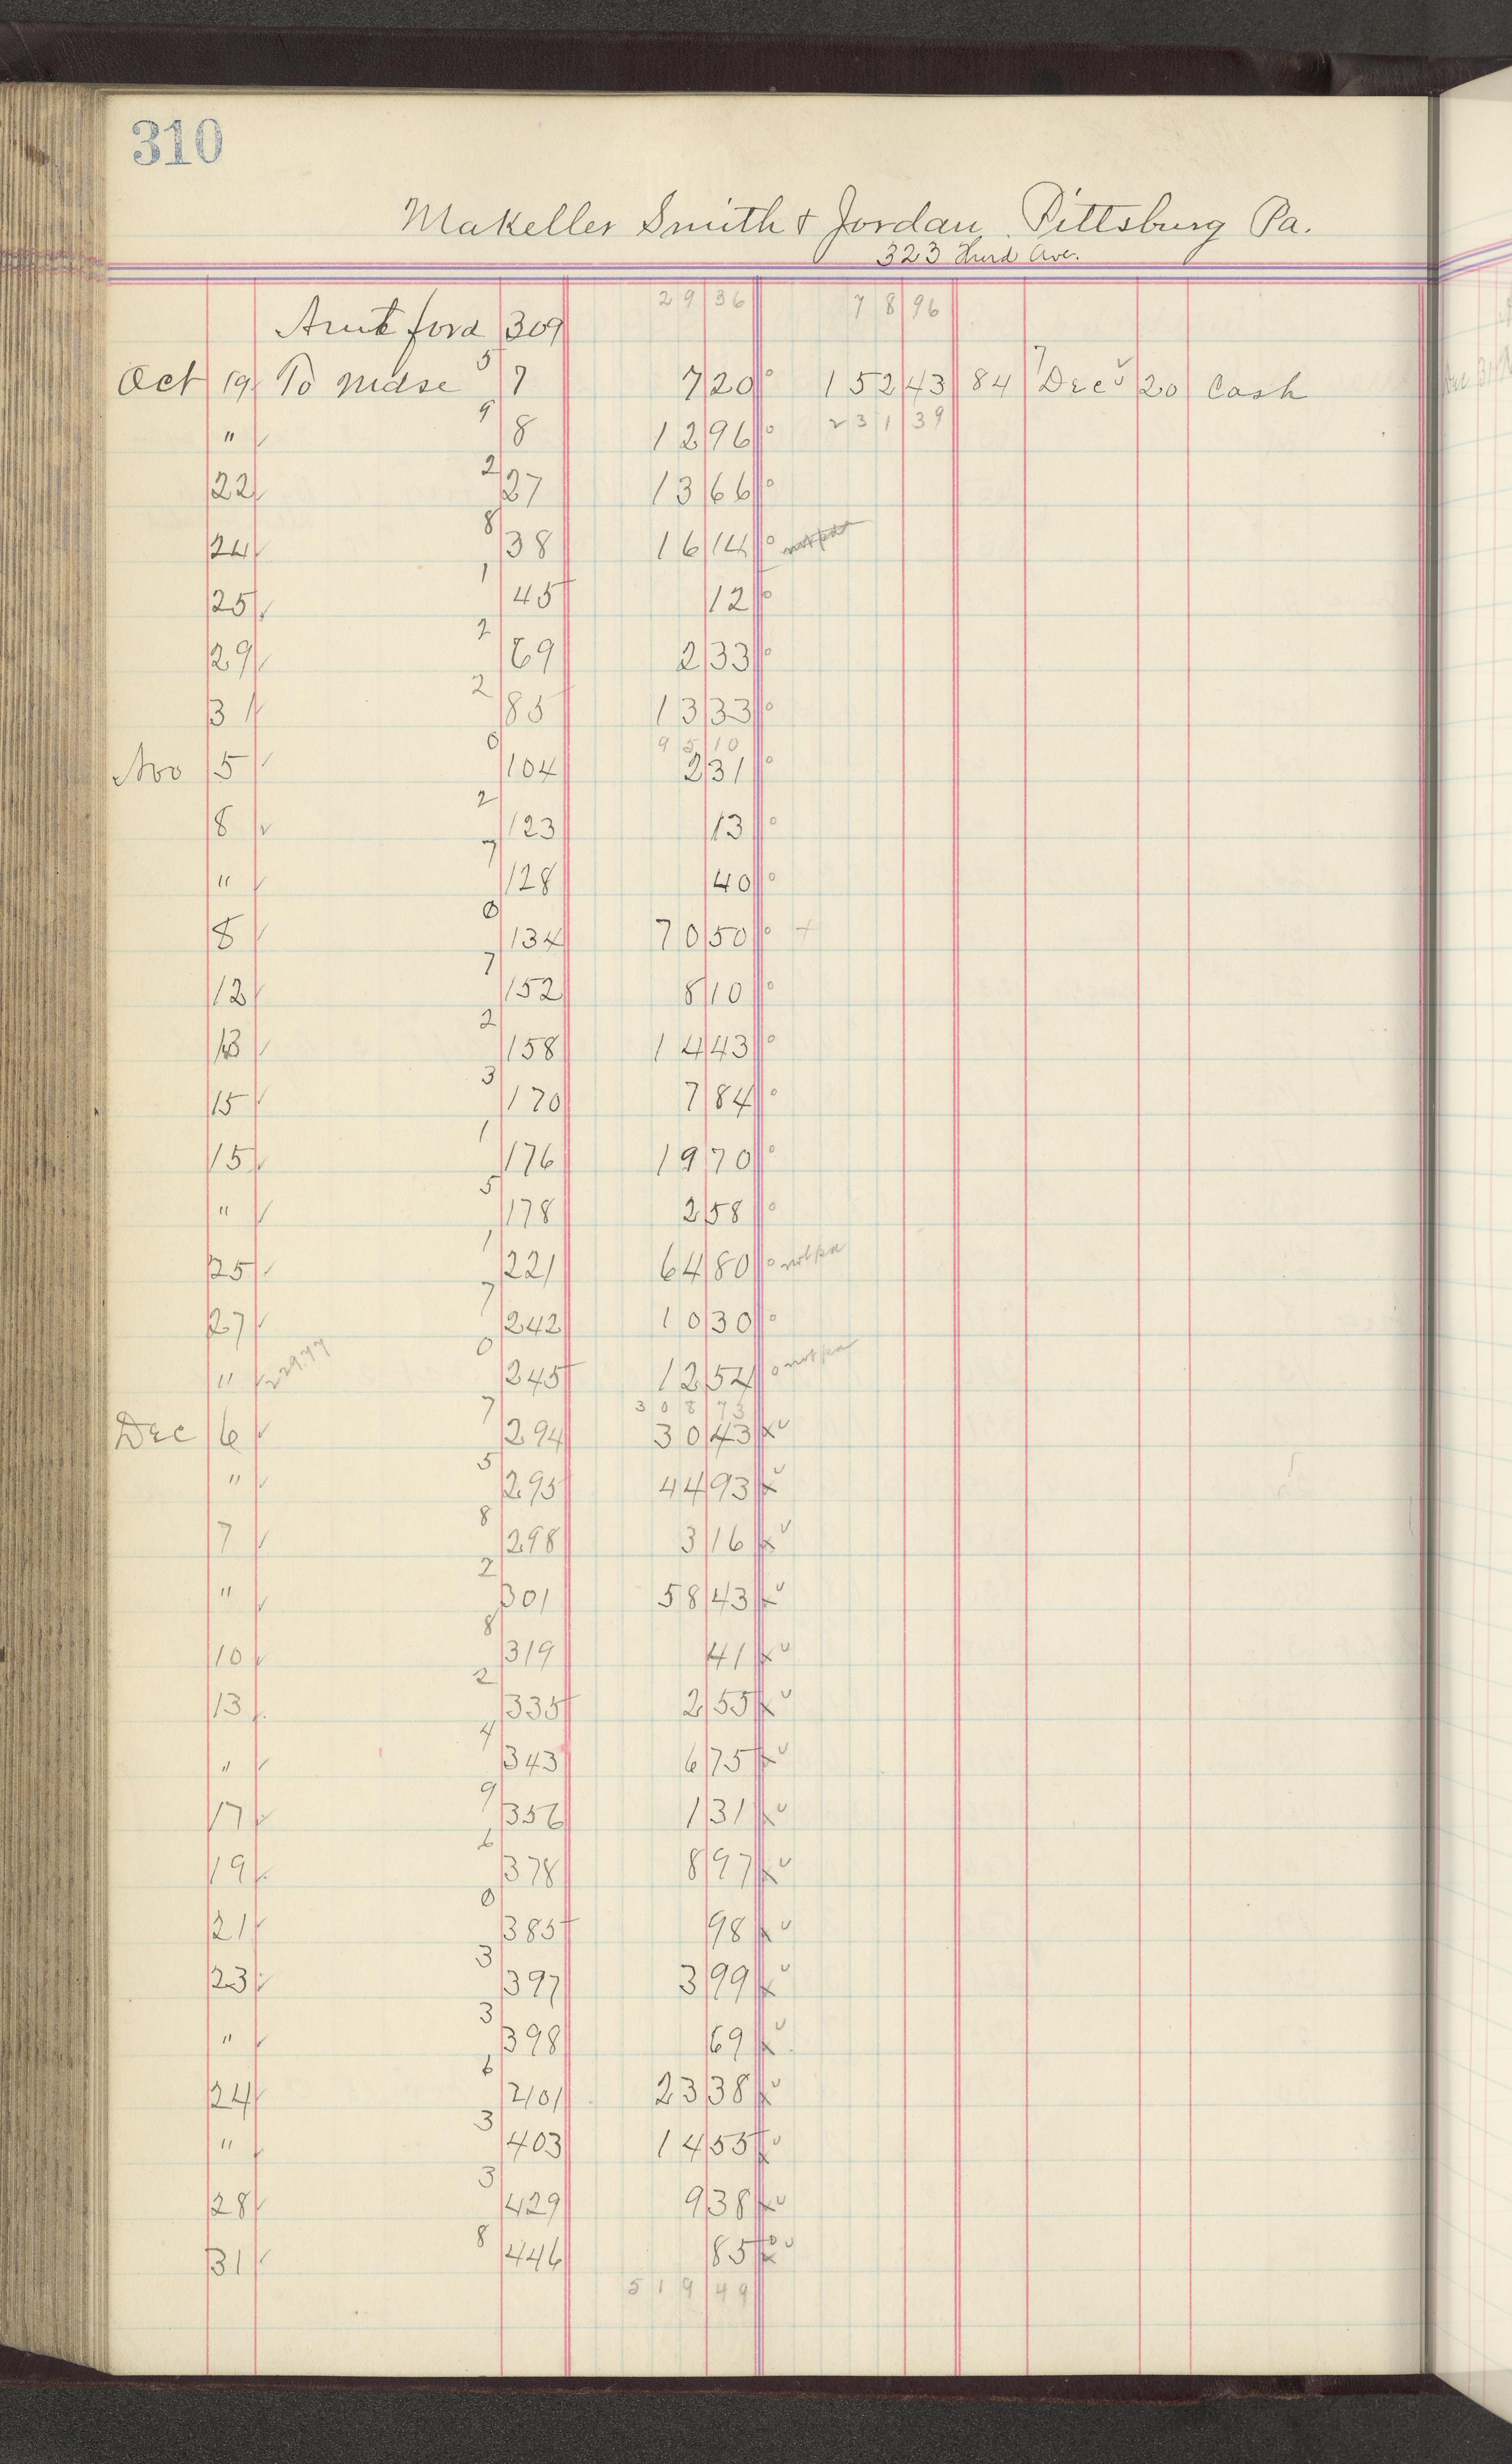 310
Makeller Smith & Jordan, Pittsburg Pa.
323 Third Ave.
29 36 78 96
Amt ford 309
Oct 19 To Mdse 5 7 7 20 152 43 84 7 Dec 20 Cash
" 9 8 12 96 231 39
22 2 27 13 66
24 8 38 16 14
25 1 45 12
29 2 69 2 33
31 2 85 13 33
95 10
Nov 5 0 104 2 31
8 2 123 13
" 7 128 40
8 0 134 70 50 +
12 7 152 8 10
13 2 158 14 43
15 3 170 7 84
15 1 176 19 70
" 5 178 2 58
25 1 221 64 80 not pd
27 7 242 10 30
" 229.77 0 245 12 54 not pd
308 73
Dec 6 7 294 30 43 x
" 5 295 44 93 x
7 8 298 3 16 x
" 2 301 58 43 x
10 8 319 41 x
13 2 335 2 55 x
" 4 343 6 75 x
17 9 356 1 31 x
19 6 378 8 97 x
21 0 385 98 x
23 3 397 3 99 x
" 3 398 69 x
24 6 401 23 38 x
" 3 403 14 55 x
28 3 429 9 38 x
31 8 446 85 x
519 49